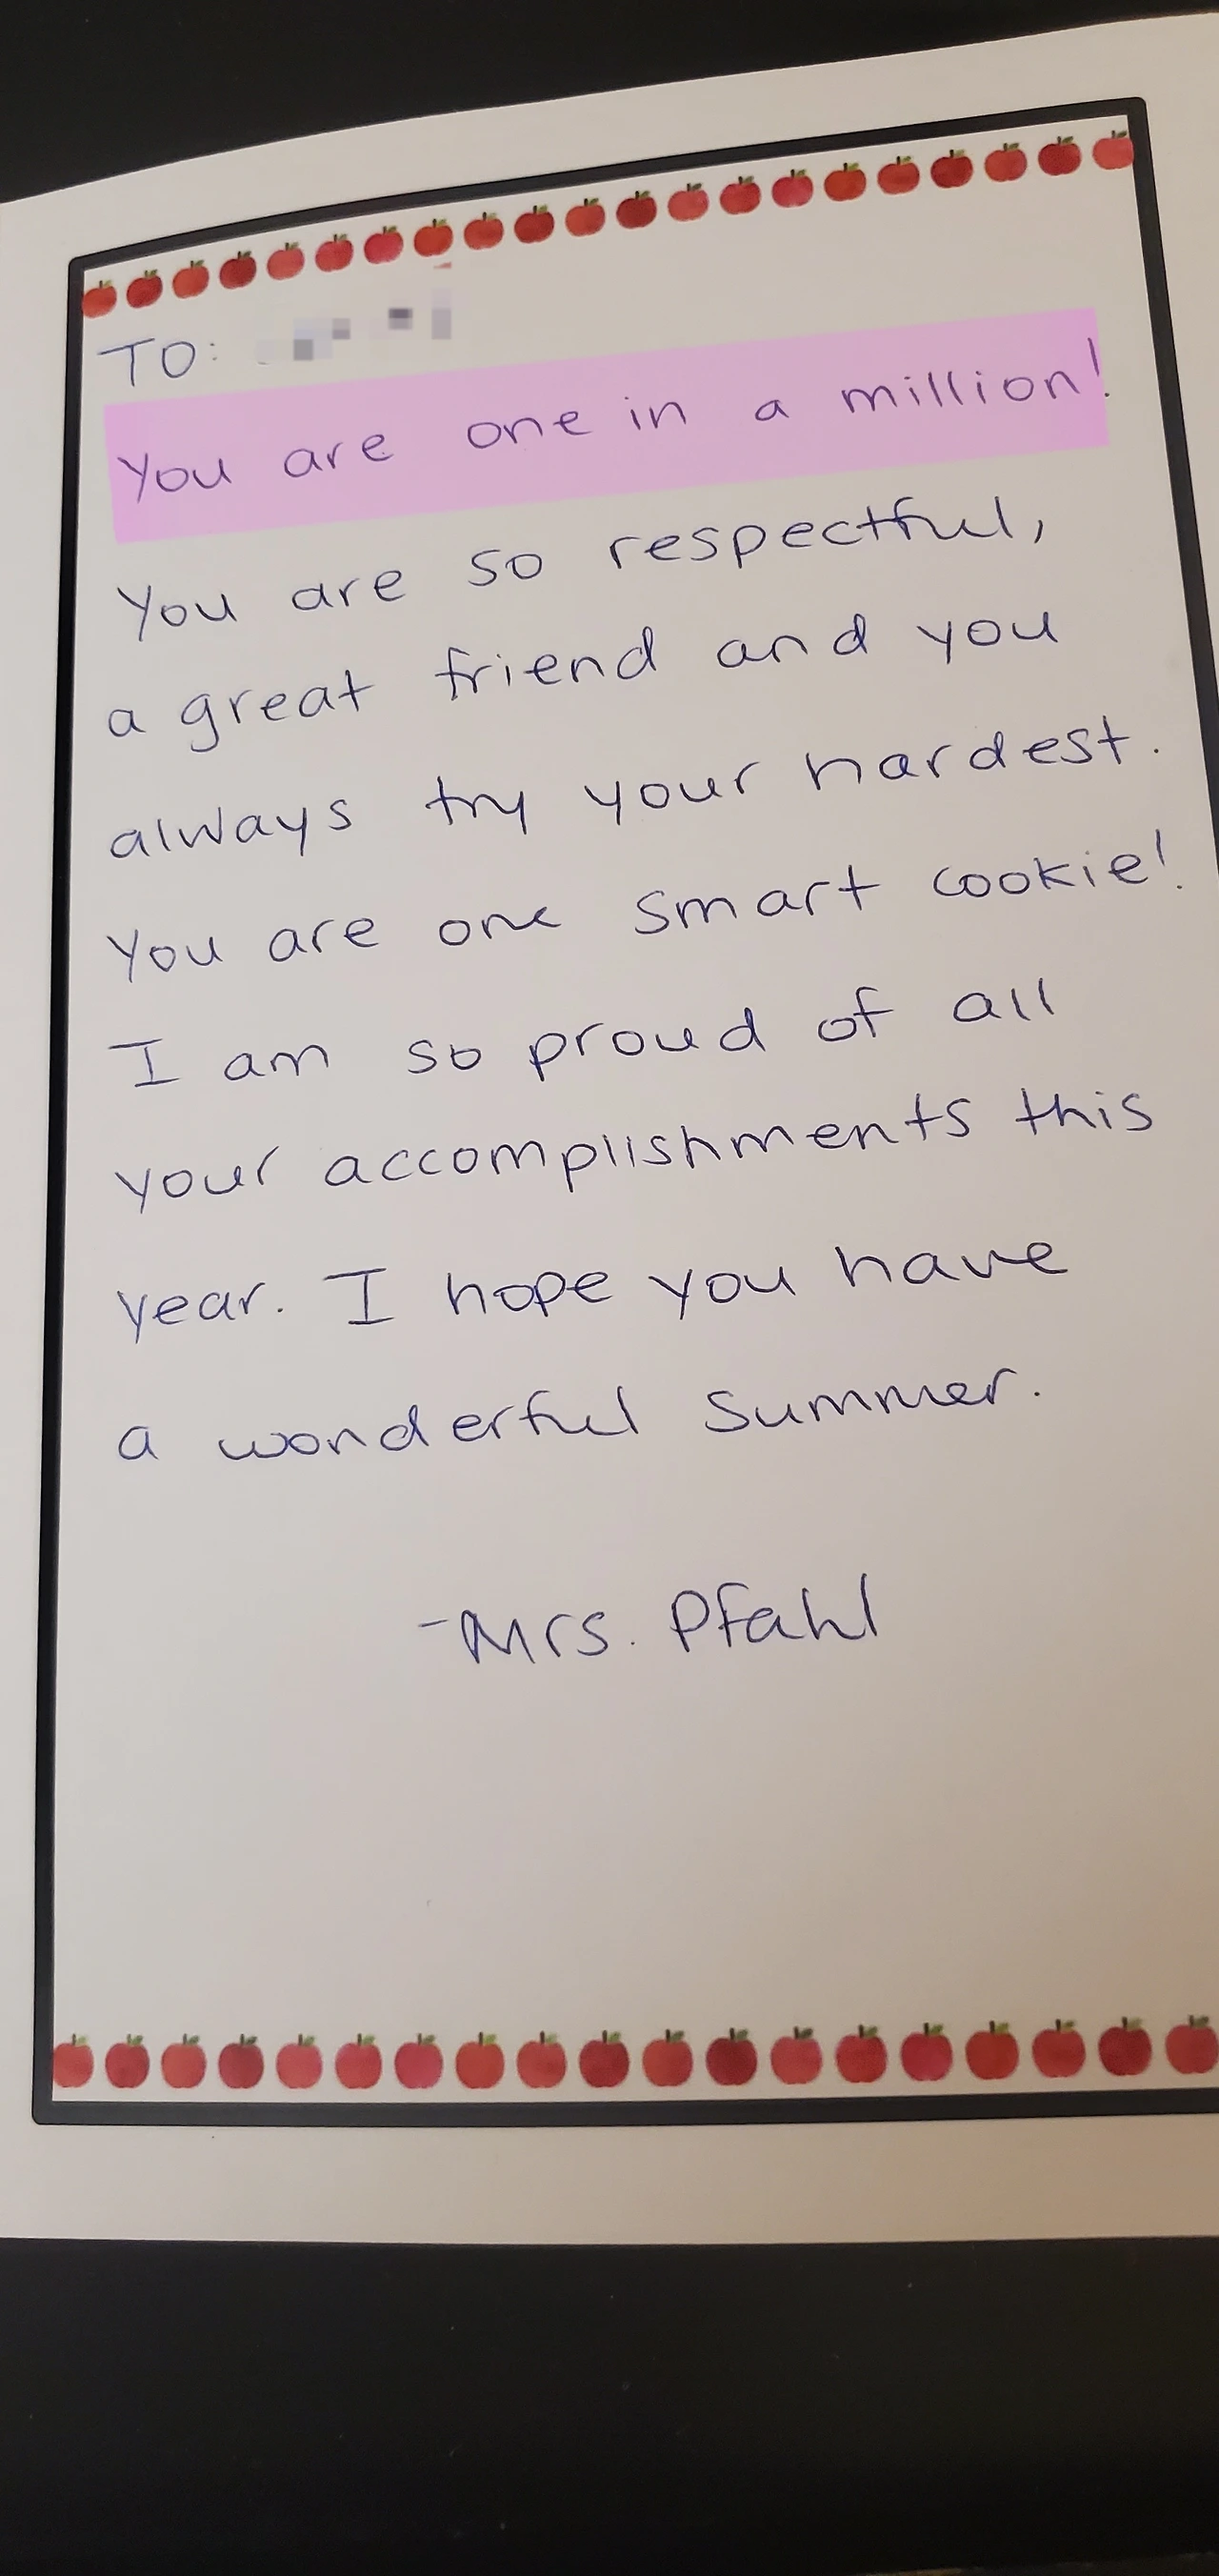 TO:
You are one in a million!
You are so respectful,
a great friend and you
always try your hardest.
You are one smart cookie!
I am so proud of all
your accomplishments this
year. I hope you have
a wonderful summer.
-Mrs. Pfahl